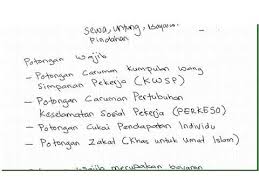 Sewa, Untung, Bayaran
Pindahan
Potongan Wajib
- Potongan Caruman Kumpulan Wang
Simpanan Pekerja (KWSP)
- Potongan Caruman Pertubuhan
Keselamatan Sosial Pekerja (PERKESO)
- Potongan Cukai Pendapatan Individu
- Potongan Zakat (Khas untuk Umat Islam)
wajib merupakan bayaran